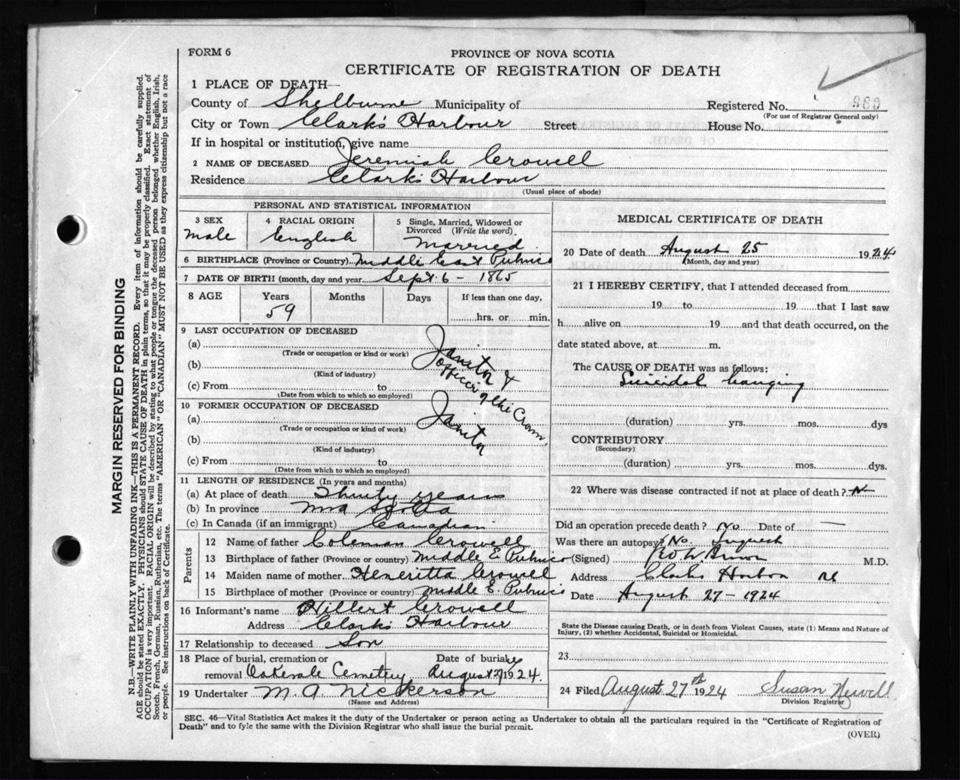 FORM 6
PROVINCE OF NOVA SCOTIA
CERTIFICATE OF REGISTRATION OF DEATH
1 PLACE OF DEATH—
County of Shelburne Municipality of
Registered No. 
(For use of Registrar General only)
City or Town Clark's Harbour Street House No.
If in hospital or institution, give name
2 NAME OF DECEASED Jeremiah Crowell
Residence Clark's Harbour
(Usual place of abode)
PERSONAL AND STATISTICAL INFORMATION
3 SEX
Male
4 RACIAL ORIGIN
English
5 Single, Married, Widowed or
Divorced (Write the word).
Married
6 BIRTHPLACE (Province or Country) Middle East Pubnico
7 DATE OF BIRTH (month, day and year) Sept. 6 - 1865
8 AGE Years Months Days If less than one day,
59
hrs. or min.
9 LAST OCCUPATION OF DECEASED
(a)
(Trade or occupation or kind or work)
(b)
(Kind of industry)
(c) From to
(Date from which to which so employed)
Janitor &
officer of the Crown
10 FORMER OCCUPATION OF DECEASED
(a)
(Trade or occupation or kind of work)
(b)
(Kind of industry)
(c) From to
(Date from which to which so employed)
Janitor
11 LENGTH OF RESIDENCE (In years and months)
(a) At place of death Thirty years
(b) In province Nova Scotia
(c) In Canada (if an immigrant) Canadian
Parents
12 Name of father Coleman Crowell
13 Birthplace of father (Province or Country) Middle E. Pubnico
14 Maiden name of mother Heneritta Crowell
15 Birthplace of mother (Province or country) Middle E. Pubnico
16 Informant's name Crowell
Address Clark's Harbour
17 Relationship to deceased Son
18 Place of burial, cremation or Date of burial
removal Cemetery August 27 1924.
19 Undertaker M. A. Nickerson
(Name and Address)
MEDICAL CERTIFICATE OF DEATH
20 Date of death August 25 1924
(Month, day and year)
21 I HEREBY CERTIFY, that I attended deceased from
19 to 19 that I last saw
h alive on 19 and that death occurred, on the
date stated above, at m.
The CAUSE OF DEATH was as follows:
Suicidal hanging
(duration) yrs. mos. dys
CONTRIBUTORY
(Secondary)
(duration) yrs. mos. dys.
22 Where was disease contracted if not at place of death?
Did an operation precede death? No. Date of —
Was there an autopsy? No. Inquest
(Signed) M.D.
Address Clarks Harbour NS
Date August 27 - 1924
State the Disease causing Death, or in death from Violent Causes, state (1) Means and Nature of
Injury, (2) whether Accidental, Suicidal or Homicidal.
23
24 Filed August 27th 1924 Susan Newell
Division Registrar
SEC. 46—Vital Statistics Act makes it the duty of the Undertaker or person acting as Undertaker to obtain all the particulars required in the "Certificate of Registration of
Death" and to fyle the same with the Division Registrar who shall issue the burial permit.
(OVER)
MARGIN RESERVED FOR BINDING
N.B.—WRITE PLAINLY WITH UNFADING INK—THIS IS A PERMANENT RECORD. Every item of information should be carefully supplied.
AGE should be stated EXACTLY. PHYSICIANS should STATE CAUSE OF DEATH in plain terms, so that it may be properly classified. Exact statement of
OCCUPATION is very important. RACIAL ORIGIN will be described by stating to what people or tongue the deceased person belonged whether English, Irish,
Scotch, French, German, Russian, Ruthenian, etc. The terms "AMERICAN" OR "CANADIAN" MUST NOT BE USED as they express citizenship but not a race
or people. See instructions on back of Certificate.